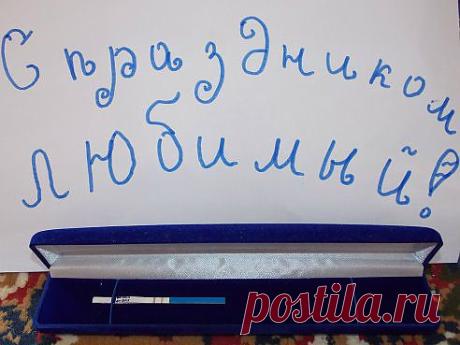 С праздником
любимый!
postila.ru